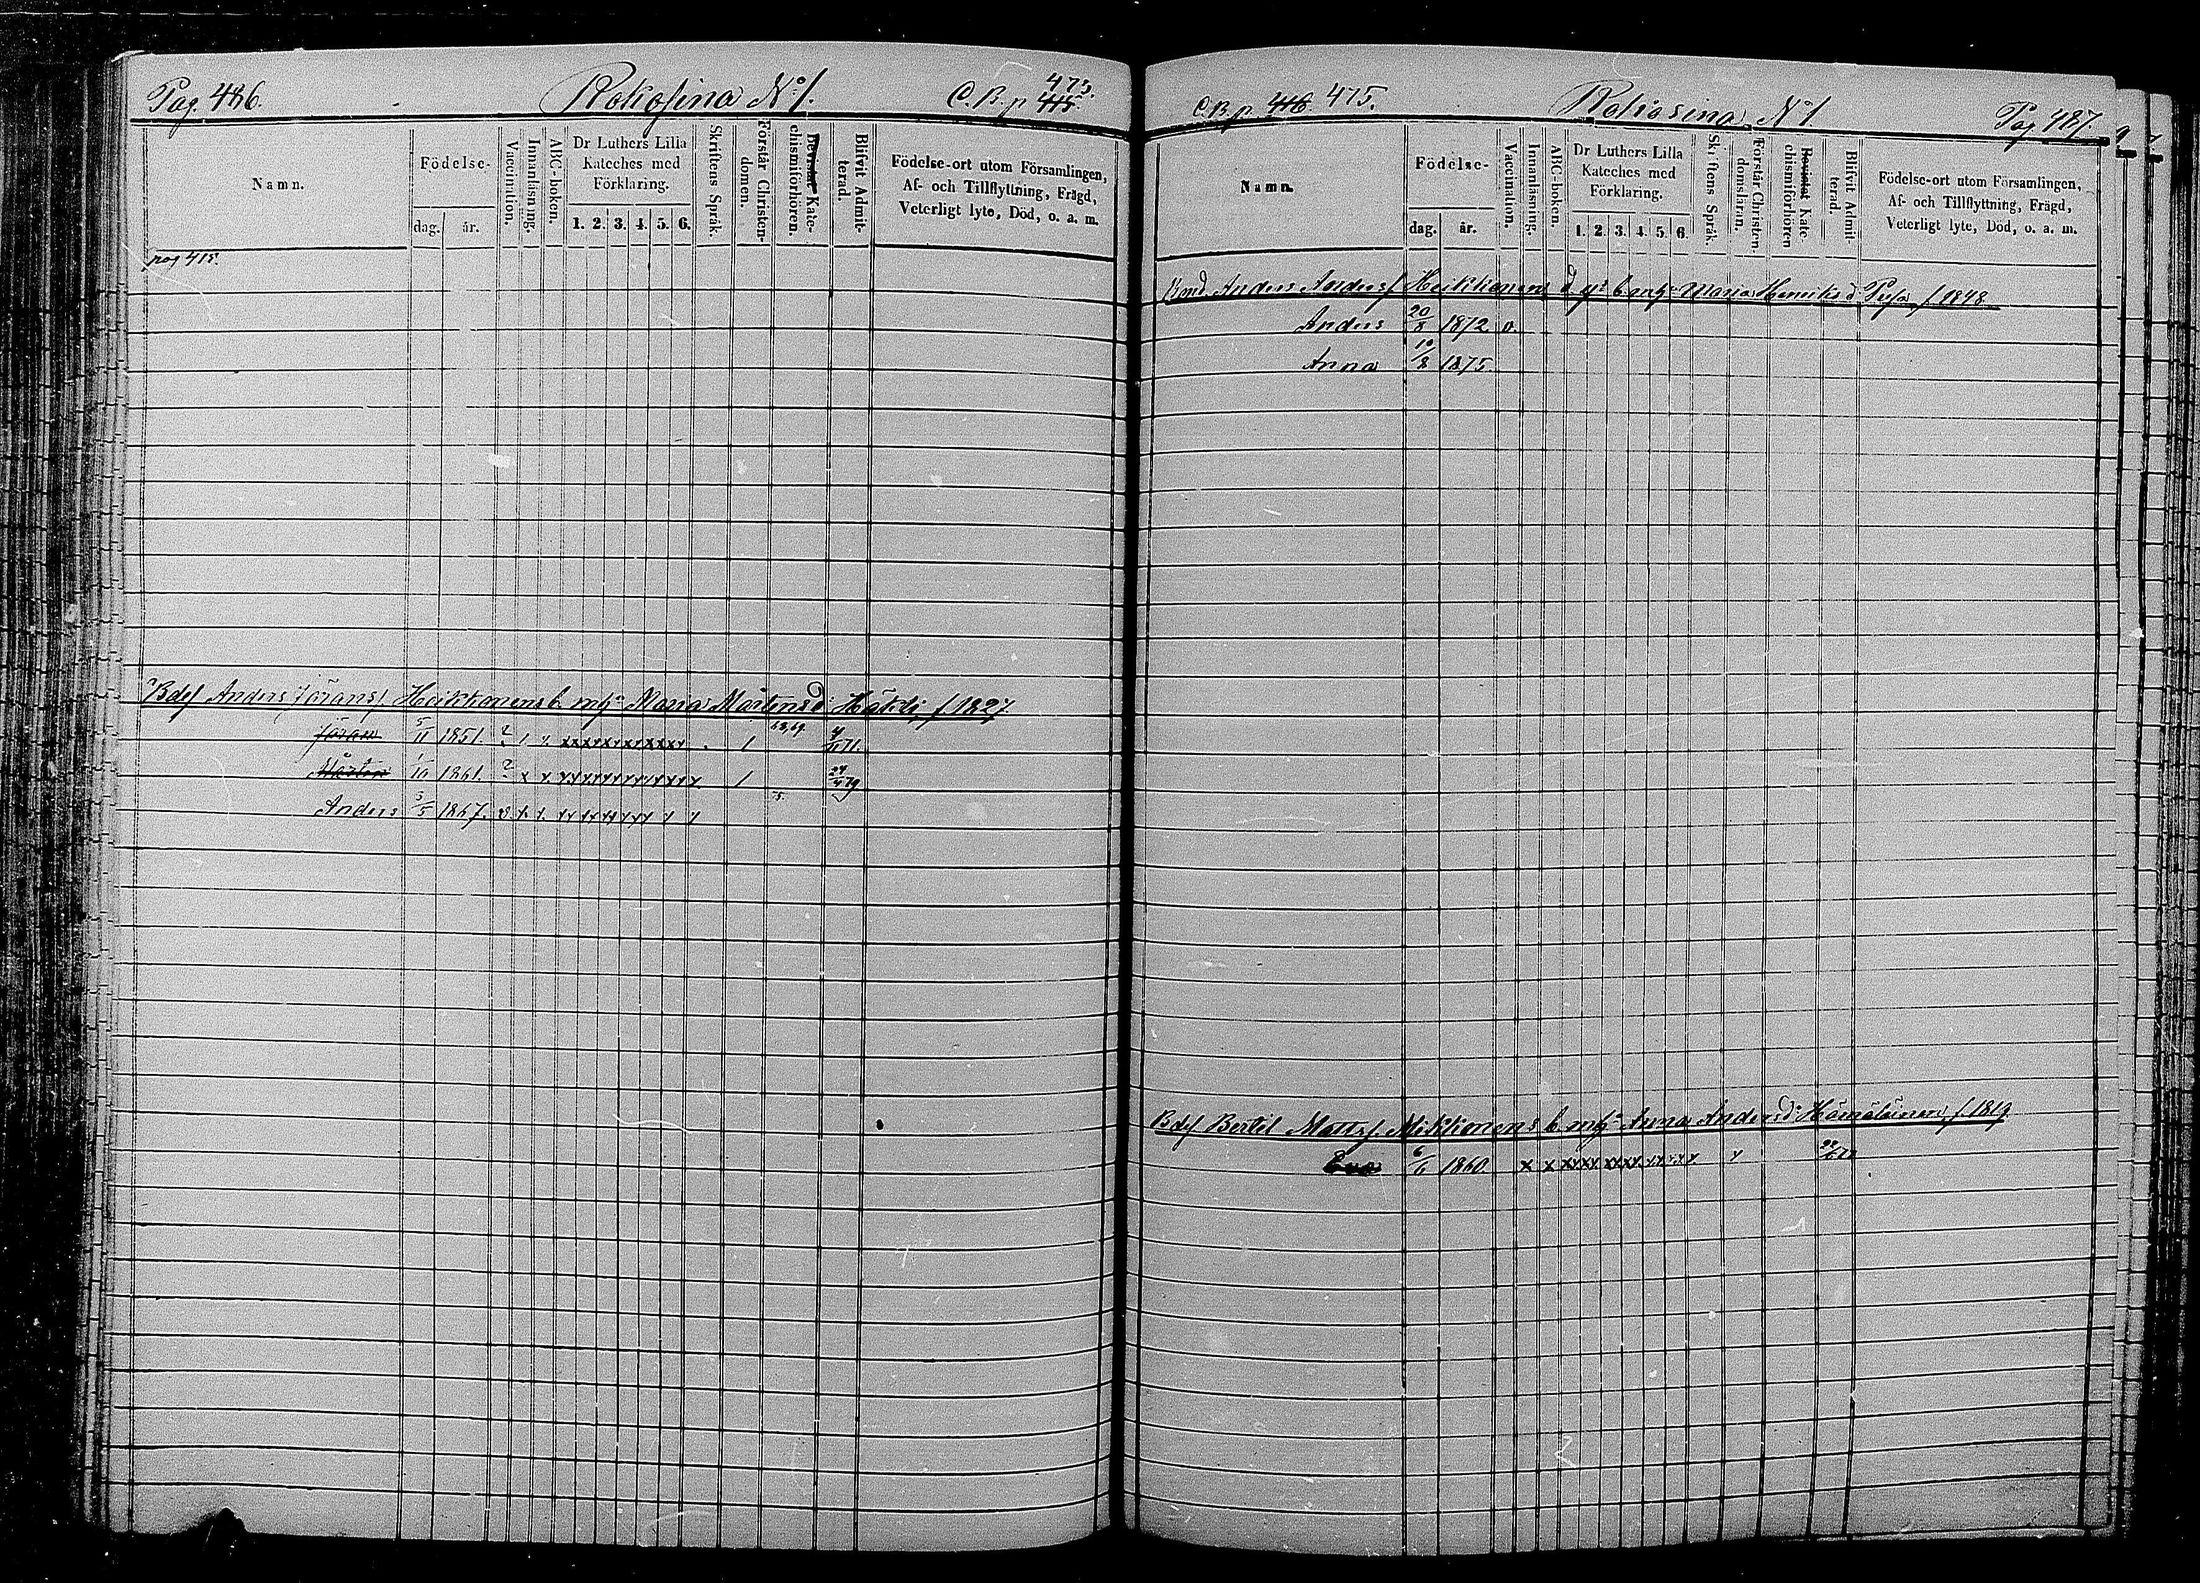 Pag. 486. Rokosina No 1. C. B. p 415. 473.
Namn. Födelse- dag. år. Vaccination. Innanläsning. ABC-boken. Dr Luthers Lilla Kateches med Förklaring. 1. 2. 3. 4. 5. 6. Skriftens Språk. Förstår Christendomen. Bevistat Katechismiförhören. Blifvit Admitterad. Födelse-ort utom Församlingen, Af- och Tillflyttning, Frägd, Veterligt lyte, Död, o. a. m.
pag 415.
Bdes Anders Jöranss. Heikkonens b. m. hu Maria Mårtensd. Hätili, f 1827
Jöran 5/11 1851. ? 1 68,69. 4/ 71.
Mårten 1/10 1861. ? x x 1 24/4 79
Anders 3/5 1867. v x x
C. B. p. 416 475. Rokosina No 1 Pag 487.
Namn. Födelse- dag. år. Vaccination. Innanläsning. ABC-boken. Dr Luthers Lilla Kateches med Förklaring. 1. 2. 3. 4. 5. 6. Skriftens Språk. Förstår Christendomsläran. Bevistat Katechismiförhören Blifvit Admitterad. Födelse-ort utom Församlingen, Af- och Tillflyttning, Frägd, Veterligt lyte, Död, o. a. m.
Bond. Anders Anderss Heikkonens d. y. b. m. hu Maria Henriksd. f. 1848
Anders 20/8 1872 v.
Anna 10/8 1875
Bdes Bertil Matts. Mikkonens b. m. hu Anna Andersd. Hämäläinen, f. 1819
Eva 6/6 1860 x x